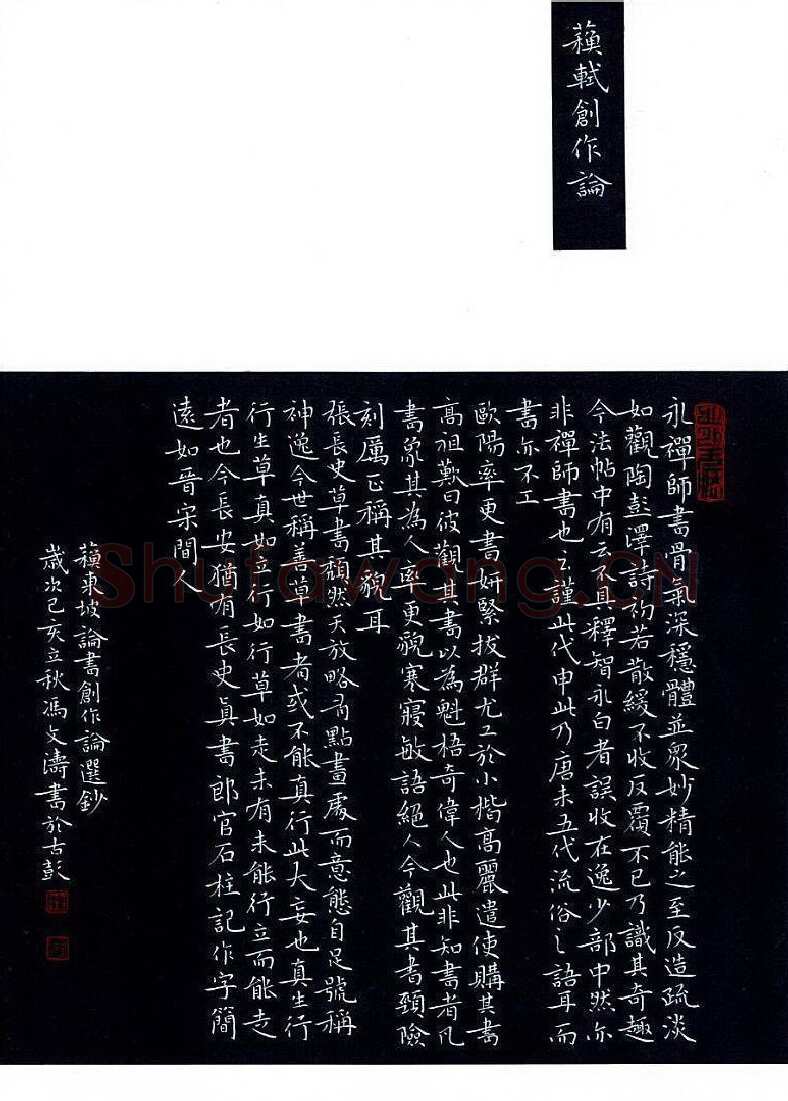 蘓軾創作論
永禪師書骨氣深穩體並眾妙精能之至反造疏淡
如觀陶彭澤詩初若散緩不收反覆不已乃識其奇趣
今法帖中有云不具釋智永白者誤收在逸少部中然亦
非禪師書也云謹此代申此乃唐末五代流俗之語耳而
書亦不工
歐陽率更書妍緊拔群尤工於小楷高麗遣使購其書
高祖歎曰彼觀其書以為魁梧奇偉人也此非知書者凡
書象其為人率更貌寒寢敏語絕人今觀其書勁險
刻厲正稱其貌耳
張長史草書頹然天放略有點畫處而意態自足號稱
神逸今世稱善草書者或不能真行此大妄也真生行
行生草真如立行如行草如走未有未能行立而能走
者也今長安猶有長史真書郎官石柱記作字簡
遠如晉宋間人
蘓東坡論書創作論選鈔
歲次己亥立秋馮文濤書於古彭
Shufawang.CN